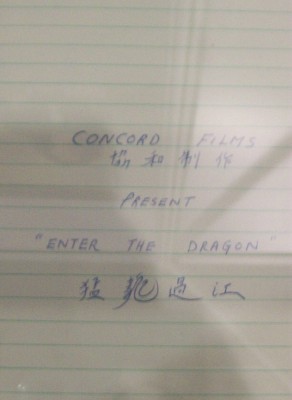 CONCORD FILMS
協和制作
PRESENT
"ENTER THE DRAGON"
猛龍過江